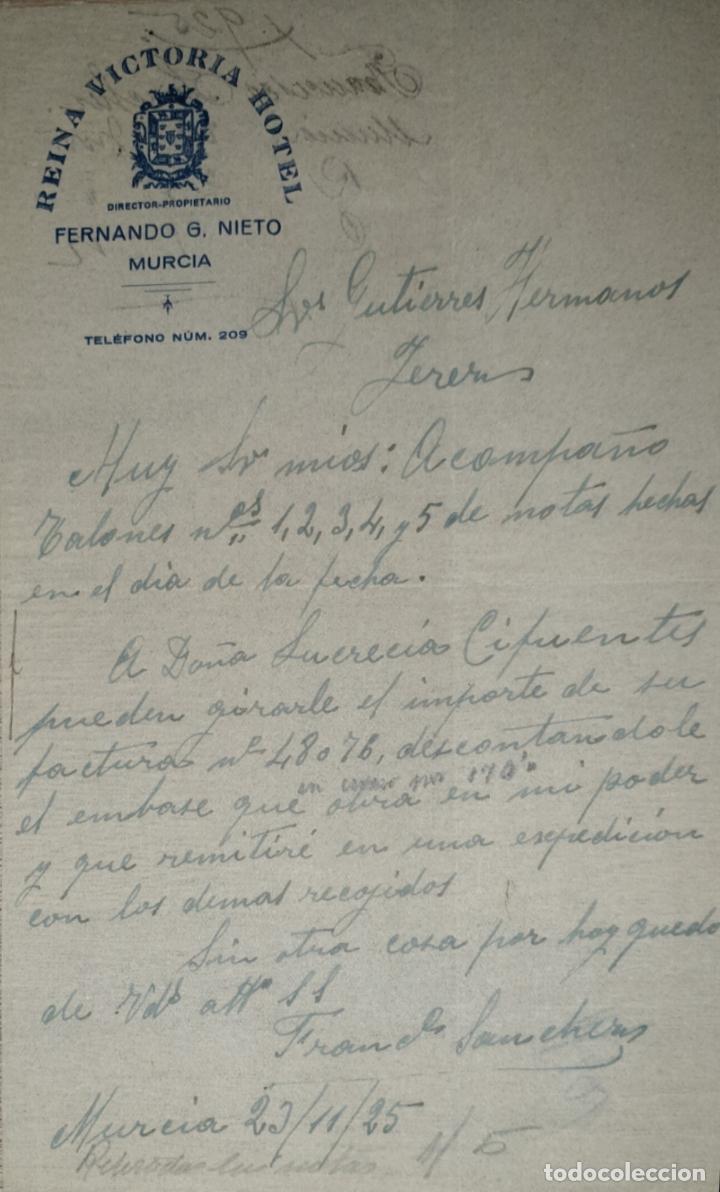 REINA VICTORIA HOTEL
DIRECTOR-PROPIETARIO
FERNANDO G. NIETO
MURCIA
TELÉFONO NÚM. 209
Srs Gutierres Hermanos
Jerez
Muy Sr mios: Acompaño
talones nos 1, 2, 3, 4, y 5 de notas hechas
en el dia de la fecha.
A Doña Lucrecia Cifuentes
pueden girarle el importe de su
factura nº 48076, descontandole
el embase que obra en mi poder
y que remitiré en una expedición
con los demas recojidos
Sin otra cosa por hoy quedo
de Vds atto SS
Francº Sanchez
Murcia 23/11/25
notas N 5
todocoleccion